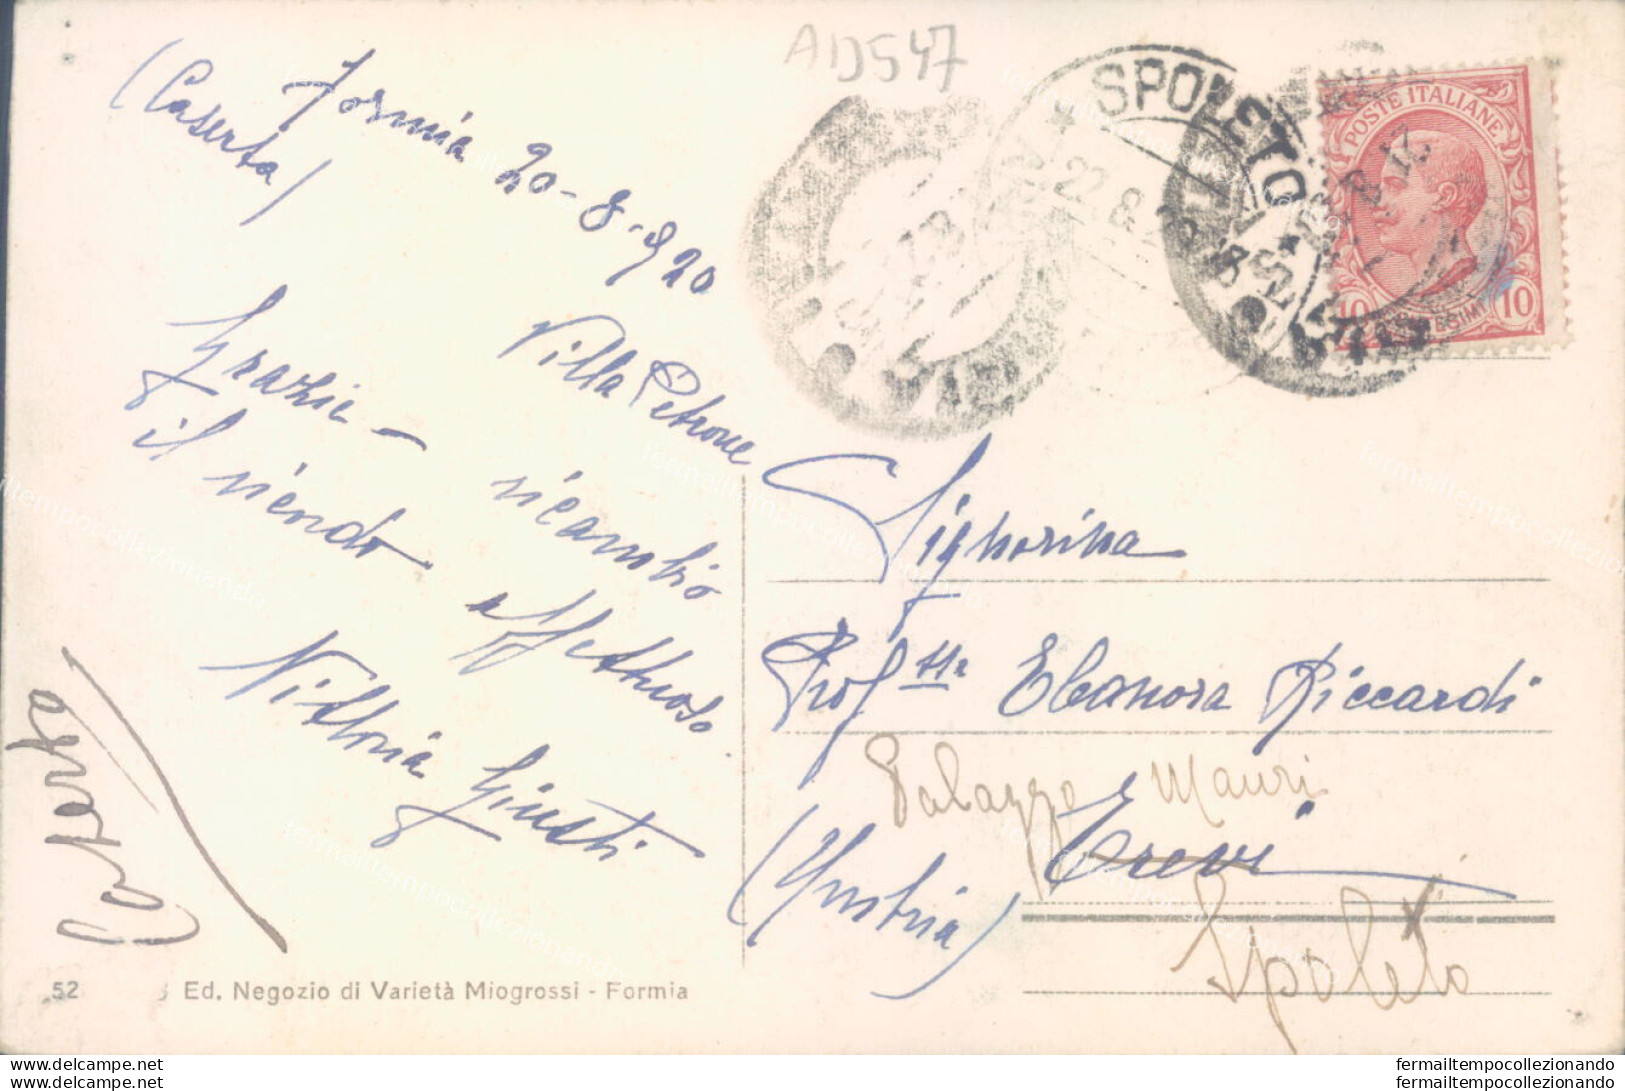 AD547
Formia 20-8-920
(Caserta)
Villa Petrone
Grazie - ricambio
il
affettuoso.
Vittoria Giusti
Caserta
52 Ed. Negozio di Varietà Miogrossi - Formia
SPOLETO
22.8
POSTE ITALIANE
10 10
Signorina
Prof.ssa Eleonora Riccardi
Palazzo Mauri
Trevi
(Umbria)
Spoleto
fermailtempocollezionando
fermailtempocollezionando
fermailtempocollezionando
fermailtempocollezionando